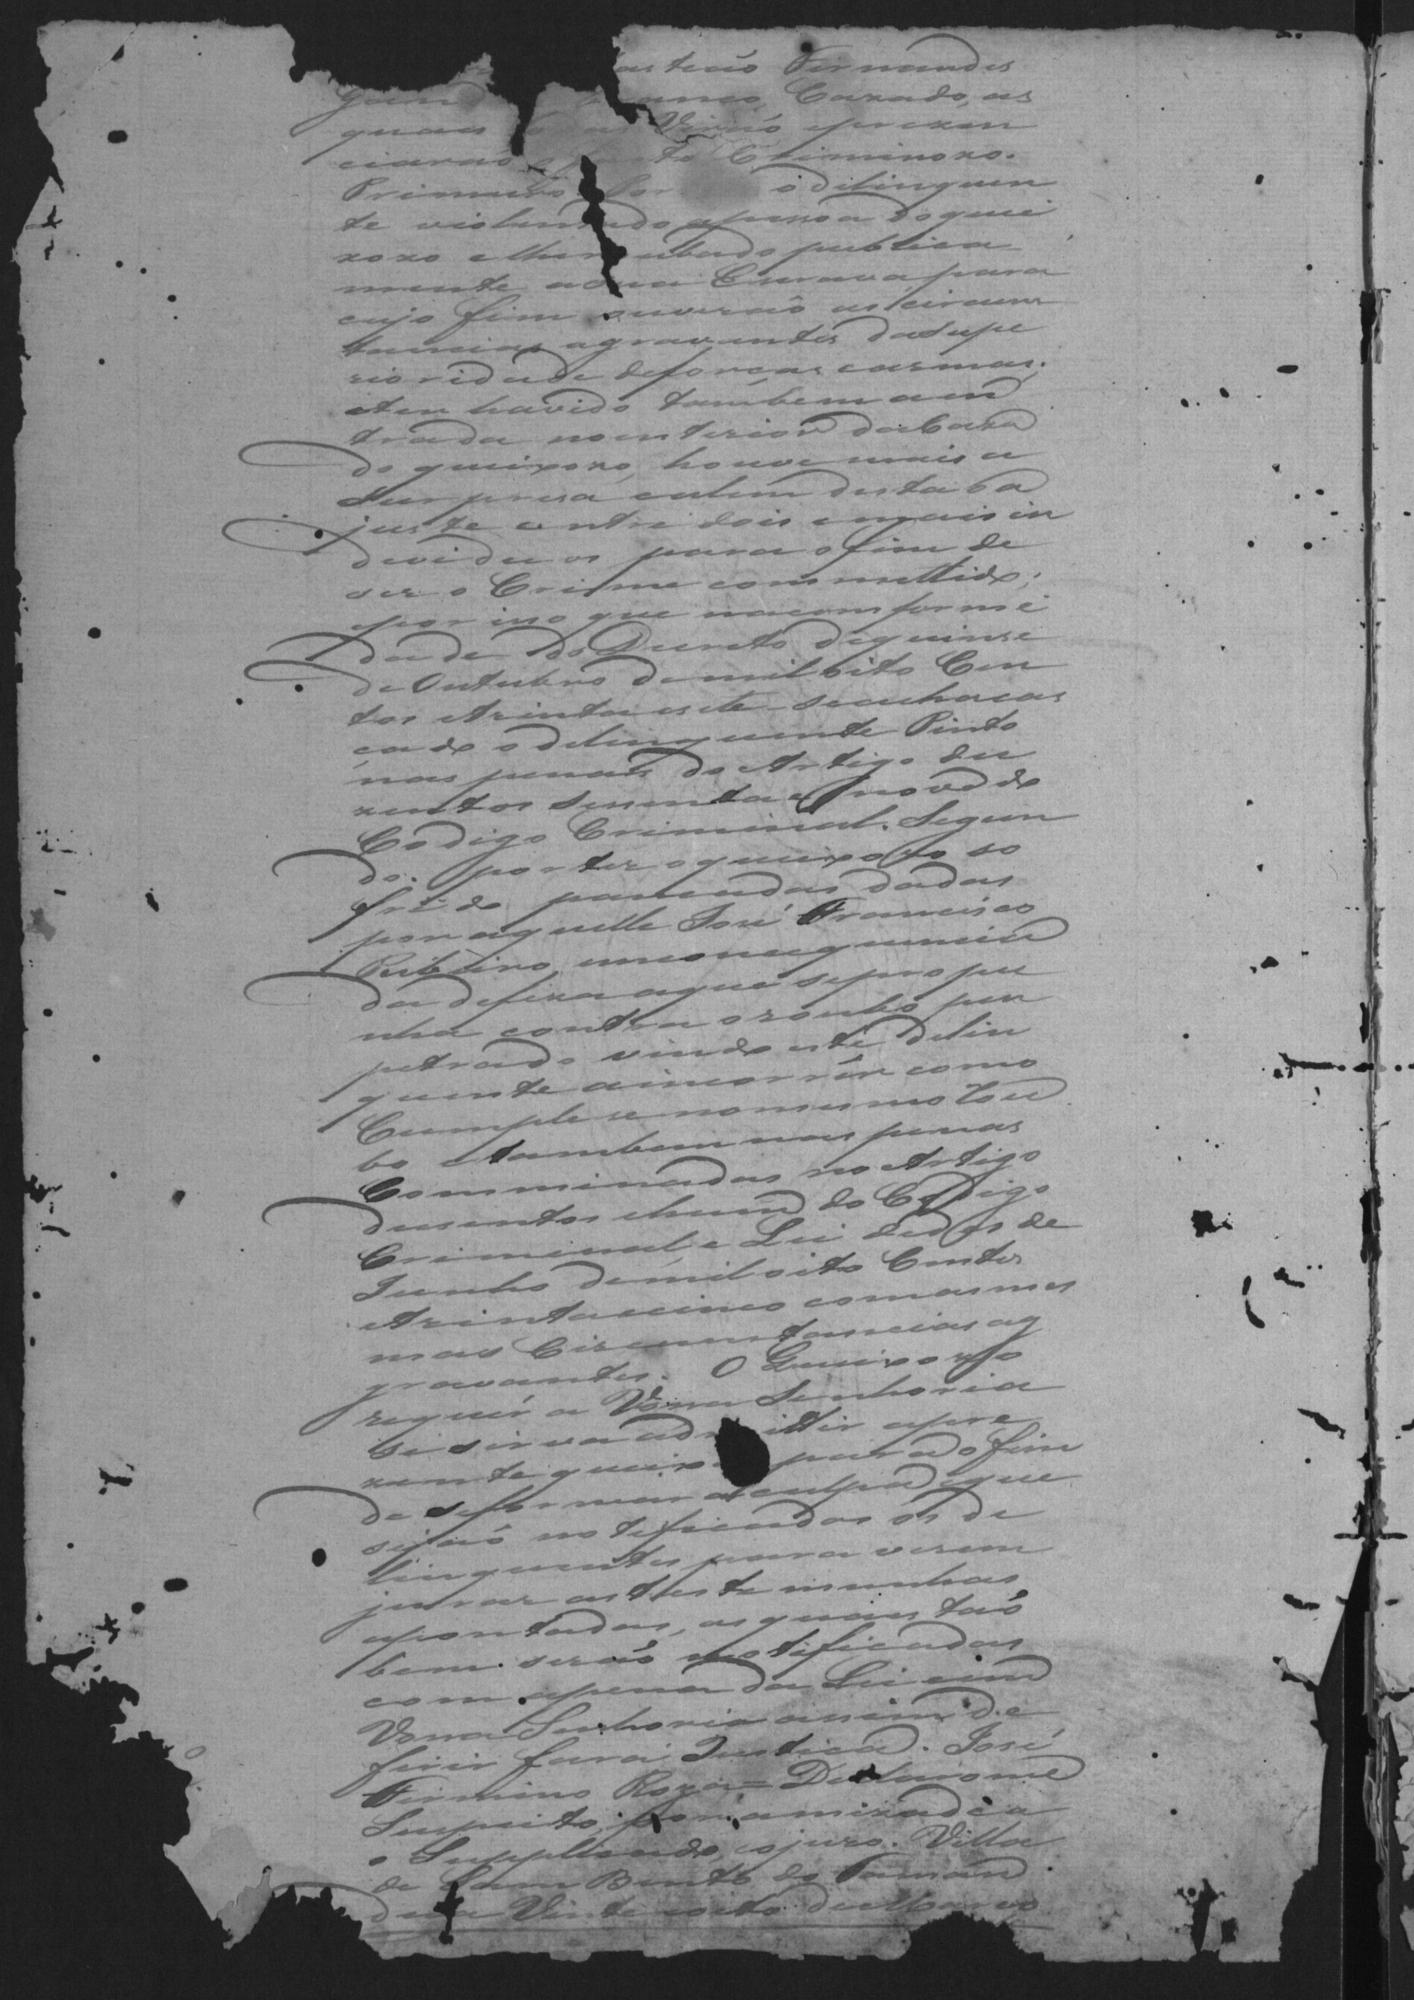 Fernandes
Cazado, as
quaes prezen
ciarão Criminozo.
Primeiro o delinquen
te violentado a pessoa do quei
xozo e lher publica
mente a sua Escrava, para
cujo fim ouverão as circuns
tancias agravantes da supe
rioridade de forças e armas;
e ter havido tambem a en
trada no interior da Caza
do queixozo, houve mais a
surpresa e alem desta o a
juste entre dois e mais in
deviduos para o fim de
ser o Crime commettido;
por isso que na comformi
dade do Decreto de quinse
de Outubro de mil oito Cen
tos e trinta e sete se acha cas
cado o delinquente Pinto
nas penas do Artigo du
zentos sesenta e nove do
Codigo Criminal. Segun
do: por ter o queixozo so
frido pancadas dadas
por aquelle José Francisco
Ribeiro, em consequencia
da defeza a que se propu
nha contra o roubo per
petrado vindo este delin
quente a incorrer como
Cumplice no mesmo rou
bo e tambem nas penas
Comminadas no Artigo
dusentos e hum do Codigo
Criminal e Lei de des de
Junho de mil oito Centos
e trinta e cinco com as mes
mas Circunstancias ag
gravantes. O Queixozo
requer a Vossa Senhoria
se sirva admittir a pre
zente queixa para o fim
de se formar a culpa e que
sejão notificados os de
linquentes para verem
jurar as testemunhas
apontadas, as quaes tão
bem serão notificadas
com a pena da Lei e em
Vossa Senhoria assim de
firir fará Justiça. José
Firmino Roza = Declarome
Suspeito por amizade a
o Supplicado, o juro. Villa
de Sam Bento do Taman
dua Vinte oito de Março